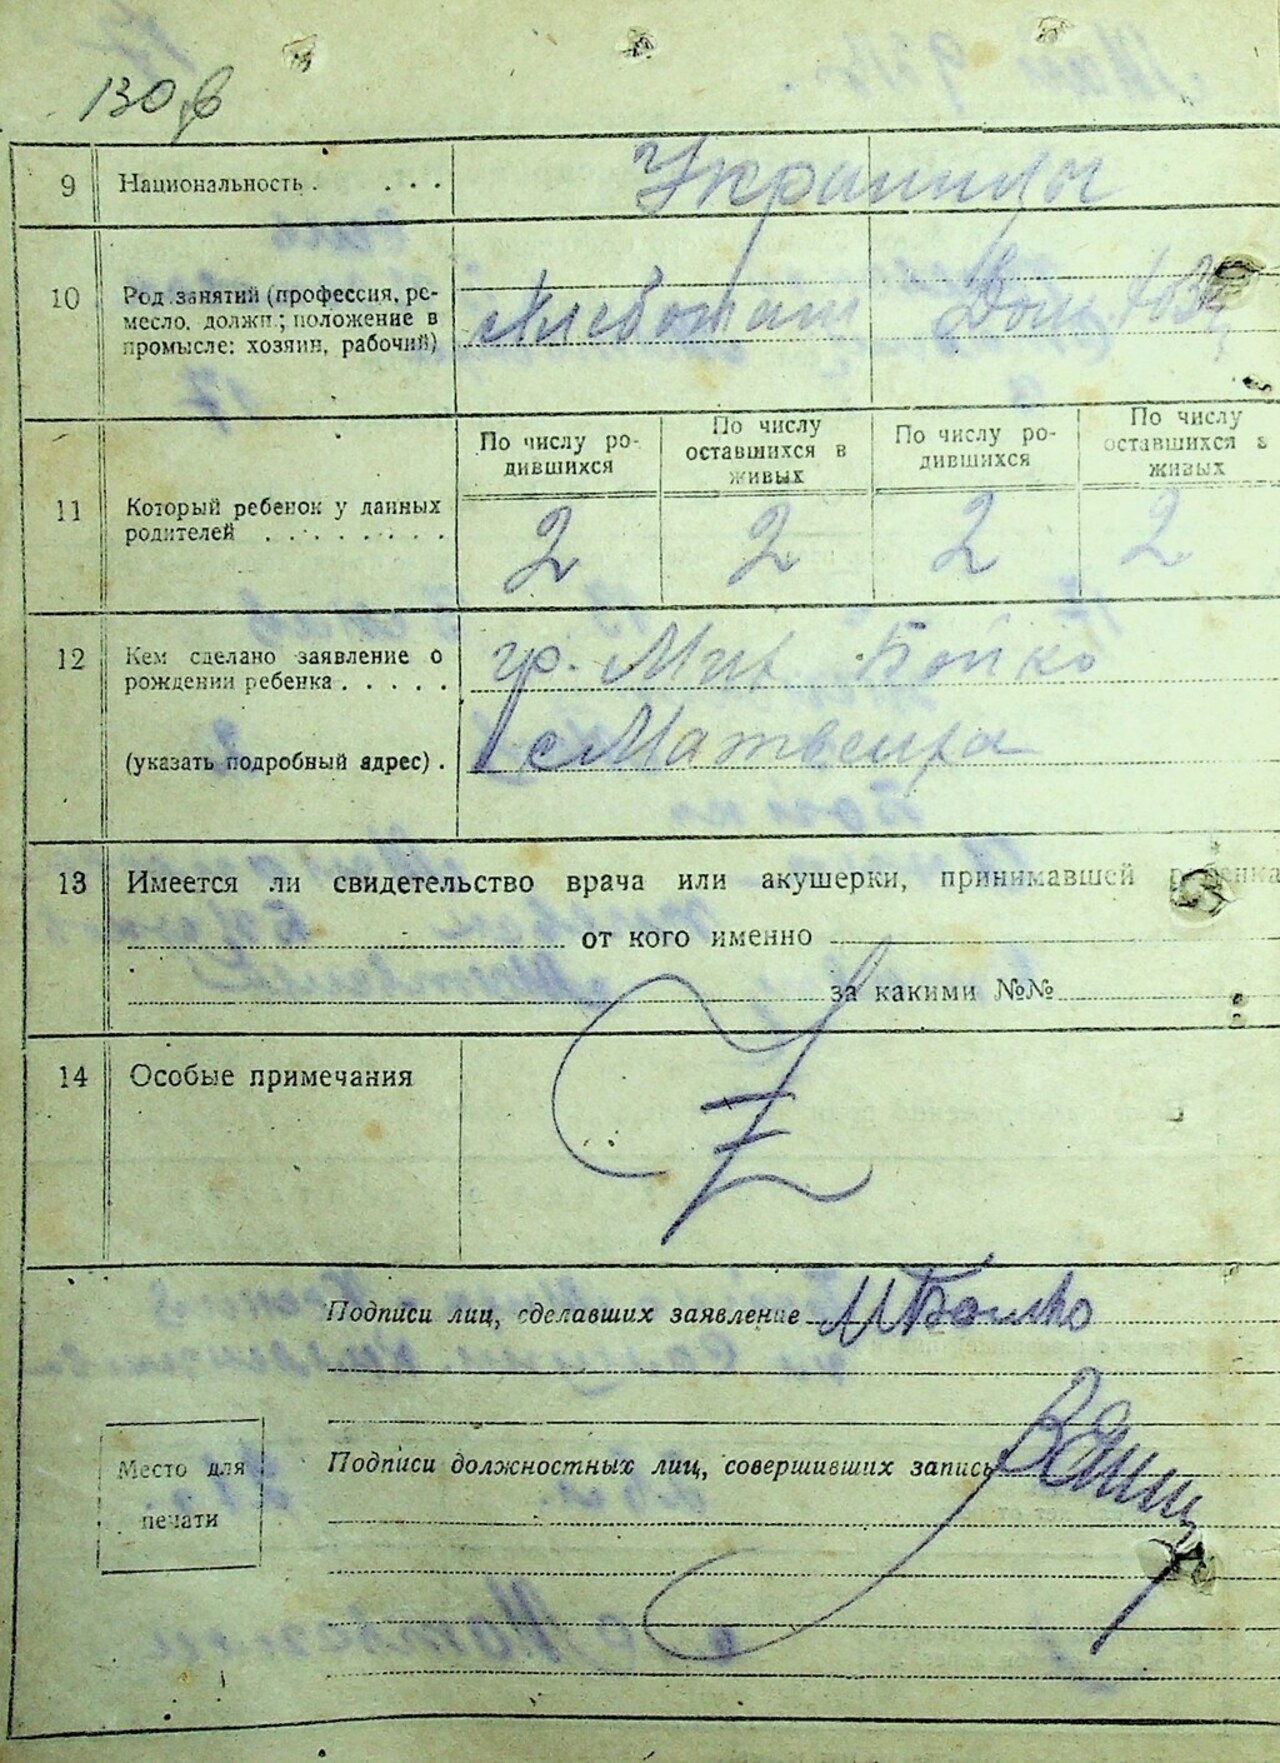 130
9 Национальность . . . . Украинцы
10 Род занятий (профессия, ре-
месло, должн; положение в
промысле: хозяин, рабочий)
Хлебопаш Дом. хоз.
11 Который ребенок у данных
родителей . . . . . . . .
По числу ро-
дившихся
По числу
оставшихся в
живых
По числу ро-
дившихся
По числу
оставшихся в
живых
2 2 2 2
12 Кем сделано заявление о
рождении ребенка . . . . .
гр. Мих. Бойко
(указать подробный адрес) .
с Матвеиха
13 Имеется ли свидетельство врача или акушерки, принимавшей ребенка
от кого именно
за какими №№
14 Особые примечания
Подписи лиц, сделавших заявление МБойко
Подписи должностных лиц, совершивших запись
Место для
печати